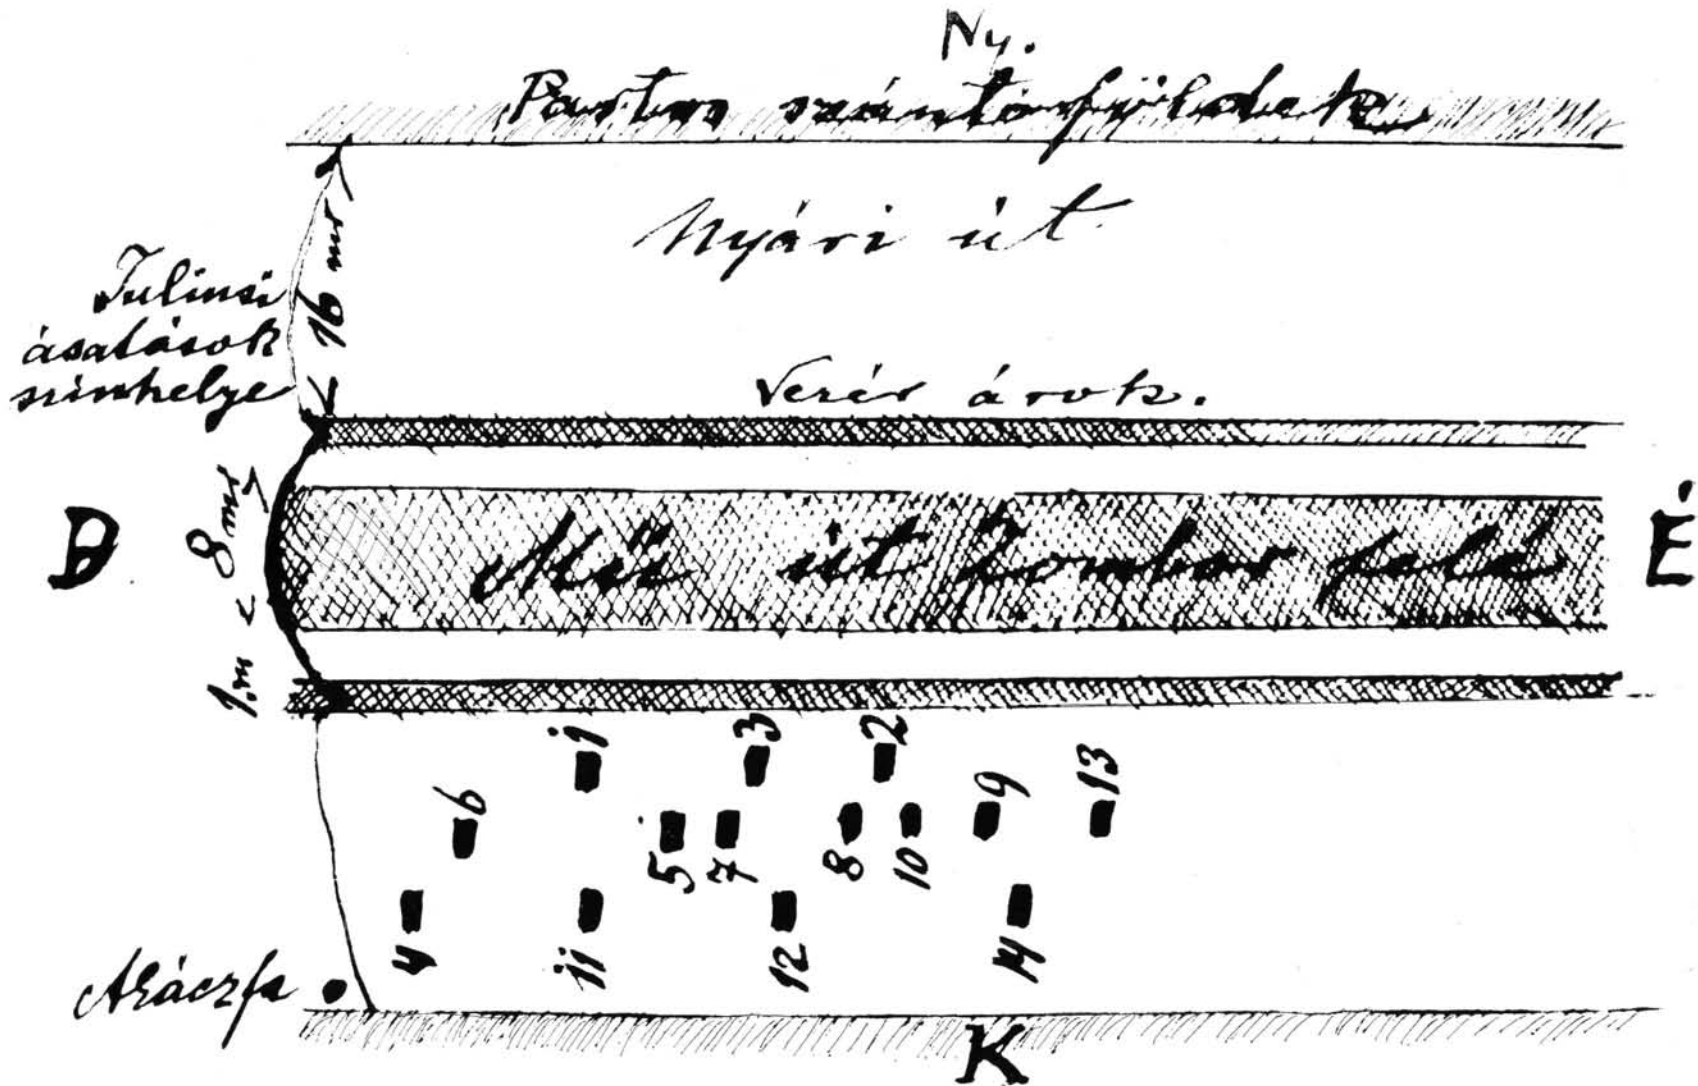 Ny.
Partos szántóföldek
Nyári út.
16 mr
Juliusi
ásatások
szinhelye
Vezér árok.
8 mr
D
Mű út Zombor felé
É
1 m
1
3
2
6
9
13
5
7
8
10
4
11
12
14
Akáczfa
K